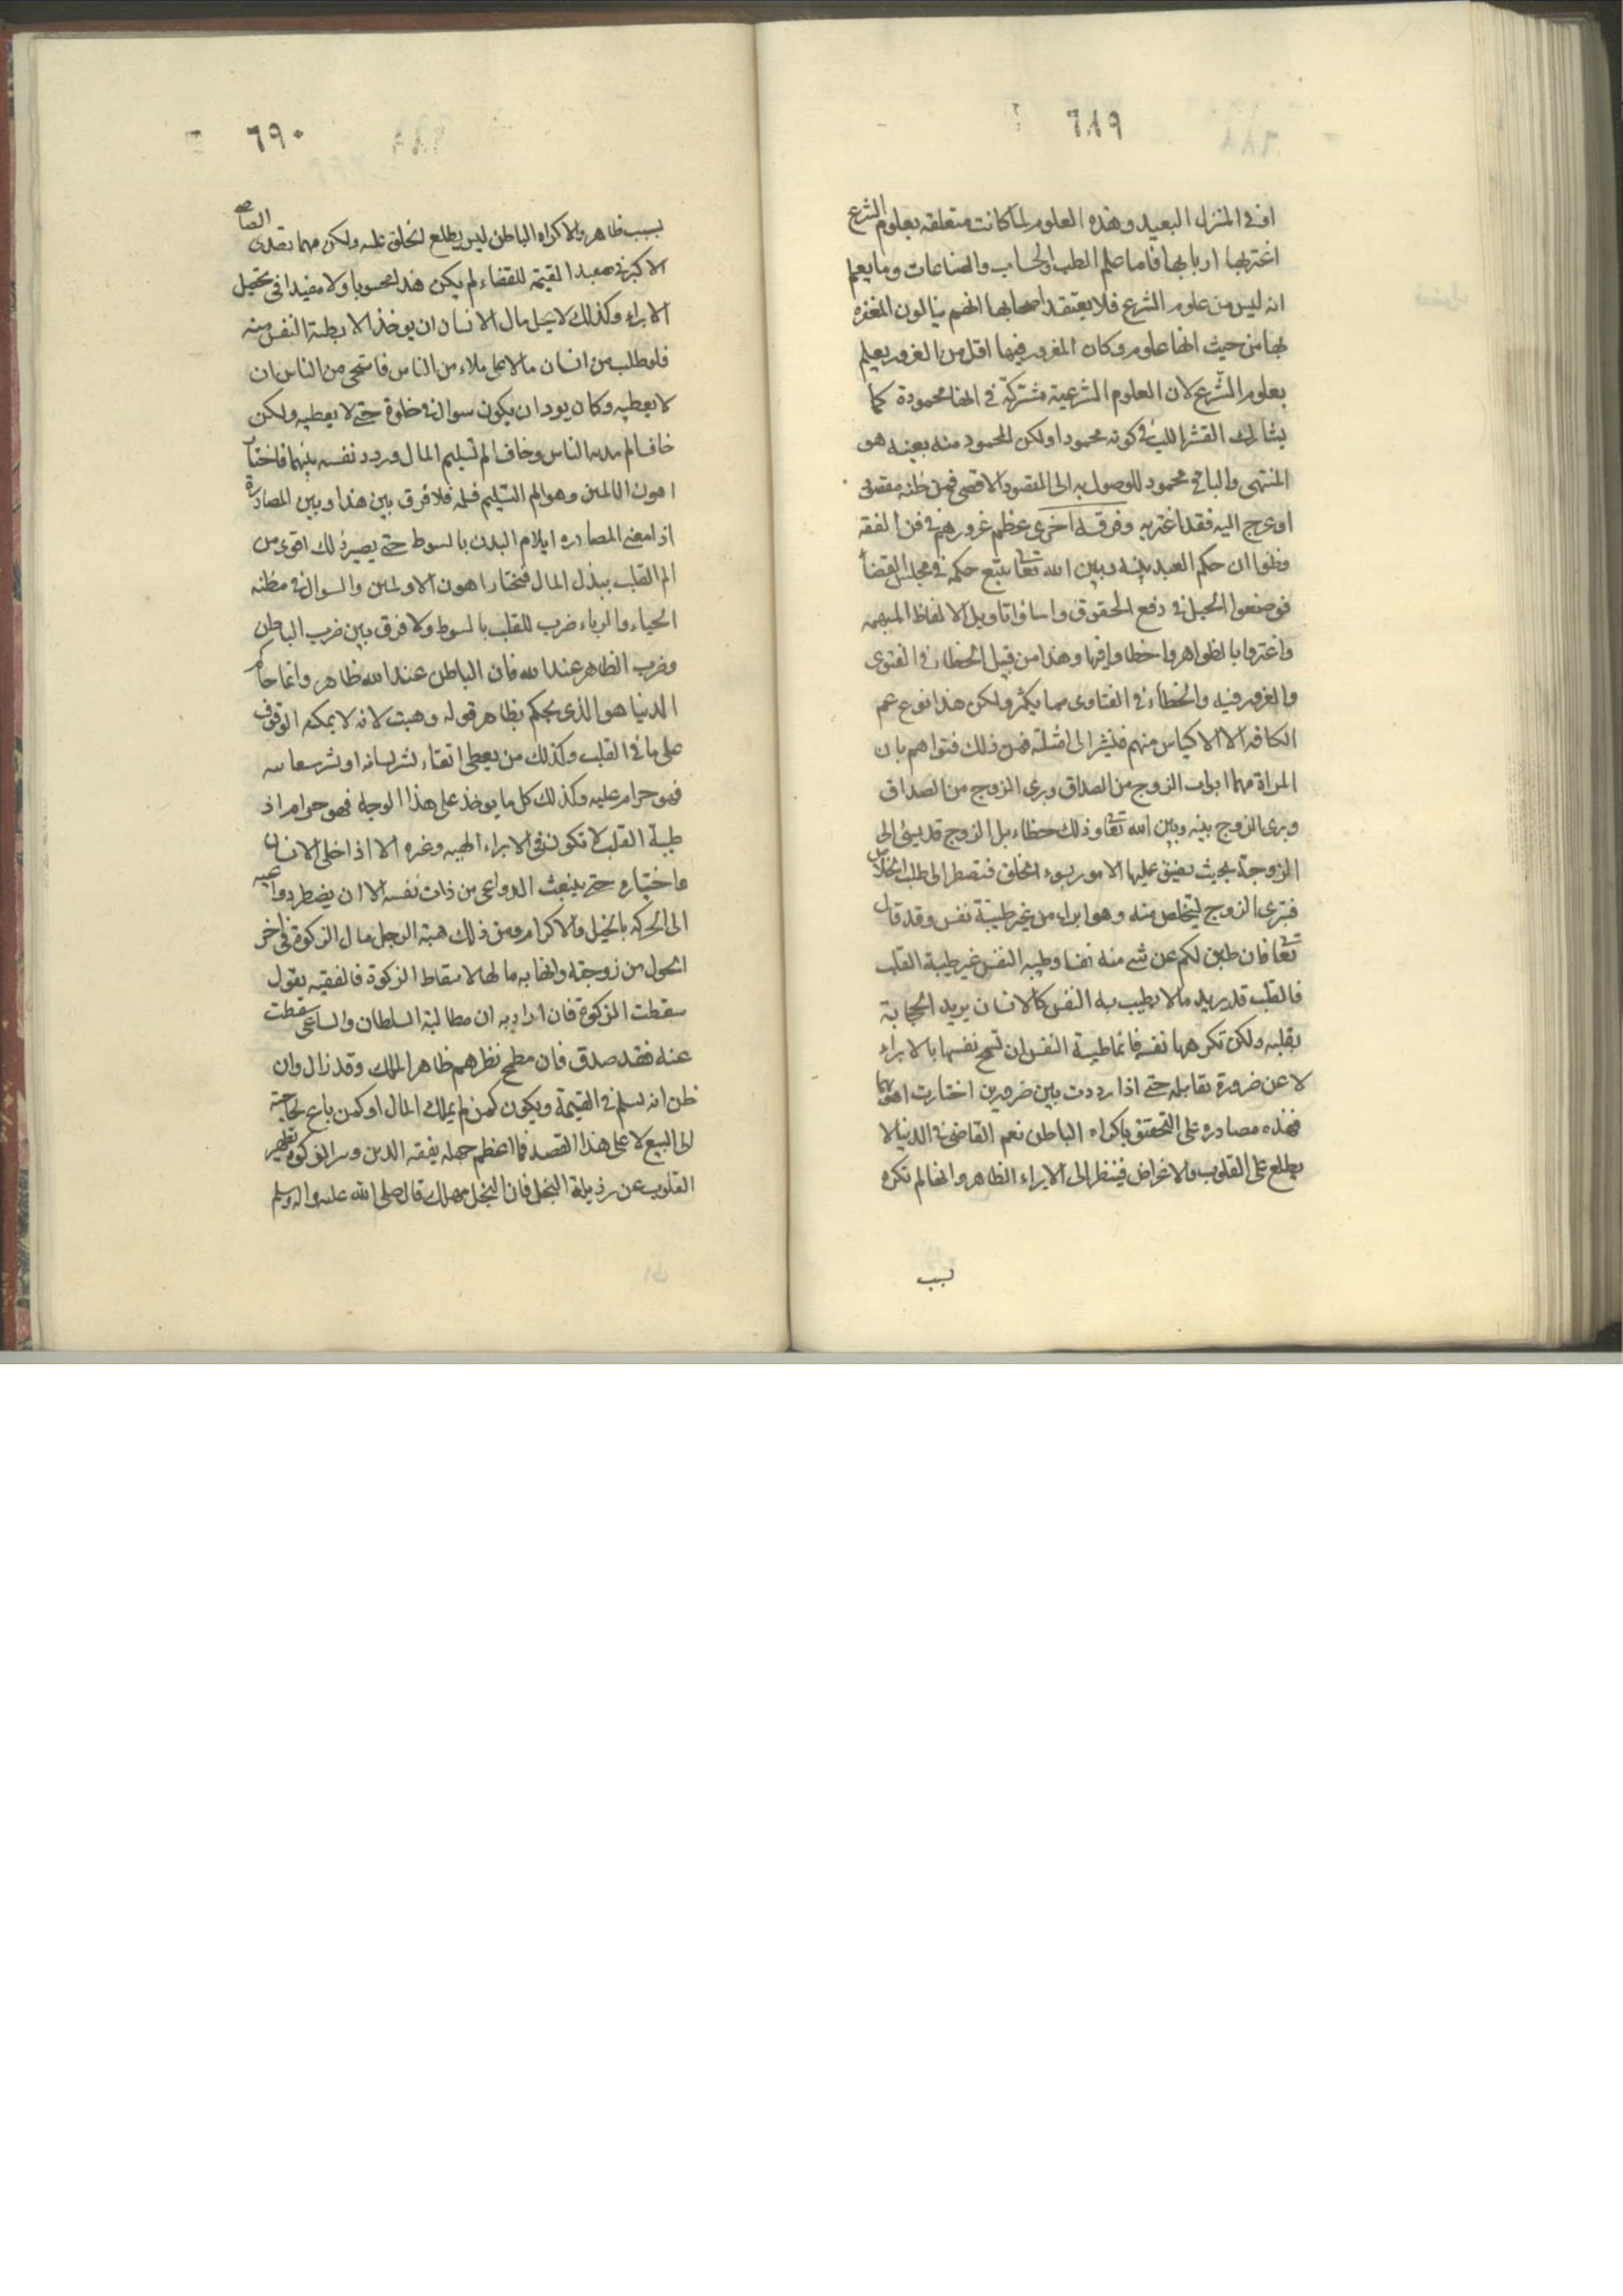 ٦٨٩
او فى المنزل البعيد وهذه العلوم لما كانت متعلقه بعلوم الشرع
اغتر بها اربابها فاما علم الطب والحساب والصناعات وما يعلم
انه ليس من علوم الشرع فلا يعتقد اصحابها انهم ينالون المغفره
بها من حيث انها علوم وكان الغرور فيها اقل من الغرور بعلم
بعلوم الشرع لان العلوم الشرعية مشتركة فى انها محمودة كما
يشارك القشر اللب فى كونه محمودا ولكن المحمود منه بعينه هو
المنتهى والباقى محمود للوصول به الى المقصود الاقصى فمن ظنه مقصودا
او عرج اليه فقد اغتر به وفرقه اخرى عظم غرورهم فى فن الفقه
وظنوا ان حكم العبد بينه وبين الله تعا يتبع حكمه فى مجلس القضا
فوضعوا الحيل فى دفع الحقوق واساؤا تاويل الالفاظ المبهمه
واغتروا بالظواهر واخطاوا فيها وهذا من قبيل الخطاء فى الفتوى
والغرور فيه والخطاء فى الفتاوى مما يكثر ولكن هذا نوع عم
الكافه الا الاكياس منهم فنشير الى امثلته فمن ذلك فتواهم بان
المراة مهما ابرات الزوج من الصداق برى الزوج من الصداق
وبرى الزوج بينه وبين الله تعا وذلك خطاء بل الزوج قد يسئ الى
الزوجة بحيث يضيق عليها الامور بسوء الخلق فتضطر الى طلب الخلاص
فتبرى الزوج ليتخلص منه وهو ابراء من غير طيبة نفس وقد قال
تعا فان طبن لكم عن شى منه نفسا وطيبه النفس غير طيبة القلب
فالقلب قد يريد ما لا يطيب به النفس كالانسان يريد الحجامة
بقلبه ولكن تكرهها نفسه فانما طيبة النفس ان تسمح نفسها بالابراء
لا عن ضرورة تقابله حتى اذا رددت بين ضررين اختارت اهونهما
فهذه مصادره على التحقق باكراه الباطن نعم القاضى فى الدنيا لا
يطلع على القلوب والاغراض فينظر الى الابراء الظاهر وانها لم تكره
بسبب
٦٩٠
بسبب ظاهر والاكراه الباطن ليس يطلع الخلق عليه ولكن مهما تصدى القاضى
الاكبر فى صعيد القيمة للقضاء لم يكن هذا محسوبا ولا مفيدا فى تحصيل
الابراء وكذلك لا يحل مال الانسان ان يوخذ الا بطيبة النفس منه
فلو طلب من انسان مالا على ملاء من الناس فاستحى من الناس ان
لا يعطيه وكان يود ان يكون سواله فى خلوة حتى لا يعطيه ولكن
خاف الم مذمه الناس وخاف الم تسليم المال وردد نفسه بينهما فاختار
اهون الالمين وهو الم التسليم فسلمه فلا فرق بين هذا وبين المصادرة
اذ معنى المصادره ايلام البدن بالسوط حتى يصير ذلك اقوى من
الم القلب ببذل المال فيختار اهون الالمين والسوال فى مظنه
الحياء والرياء ضرب للقلب بالسوط ولا فرق بين ضرب الباطن
وضرب الظاهر عند الله فان الباطن عند الله ظاهر وانما حاكم
الدنيا هو الذى يحكم بظاهر قوله وهبت لانه لا يمكنه الوقوف
على ما فى القلب وكذلك من يعطى اتقاء لشر لسانه او شر سعايته
فهو حرام عليه وكذلك كل ما يوخذ على هذا الوجه فهو حرام اذ
طيبة القلب لا تكون فى الابراء والهبه وغيره الا اذا خلى الانسان
واختياره حتى ينبعث الدواعى من ذات نفسه الا ان يضطر دواعيه
الى الحركه بالحيل والاكرام ومن ذلك هبة الرجل مال الزكوة فى اخر
الحول من زوجته واتهابه مالها لاسقاط الزكوة فالفقيه يقول
سقطت الزكوة فان اراد به ان مطالبة السلطان والساعى سقطت
عنه فقد صدق فان مطمح نظرهم ظاهر الملك وقد زال وان
ظن انه يسلم فى القيمة ويكون كمن لم يملك المال او كمن باع لحاجته
الى البيع لا على هذا القصد فما اعظم جهله بفقه الدين وسر الزكوة تطهير
القلوب عن رذيلة البخل فان البخل مهلك قال صلى الله عليه واله وسلم